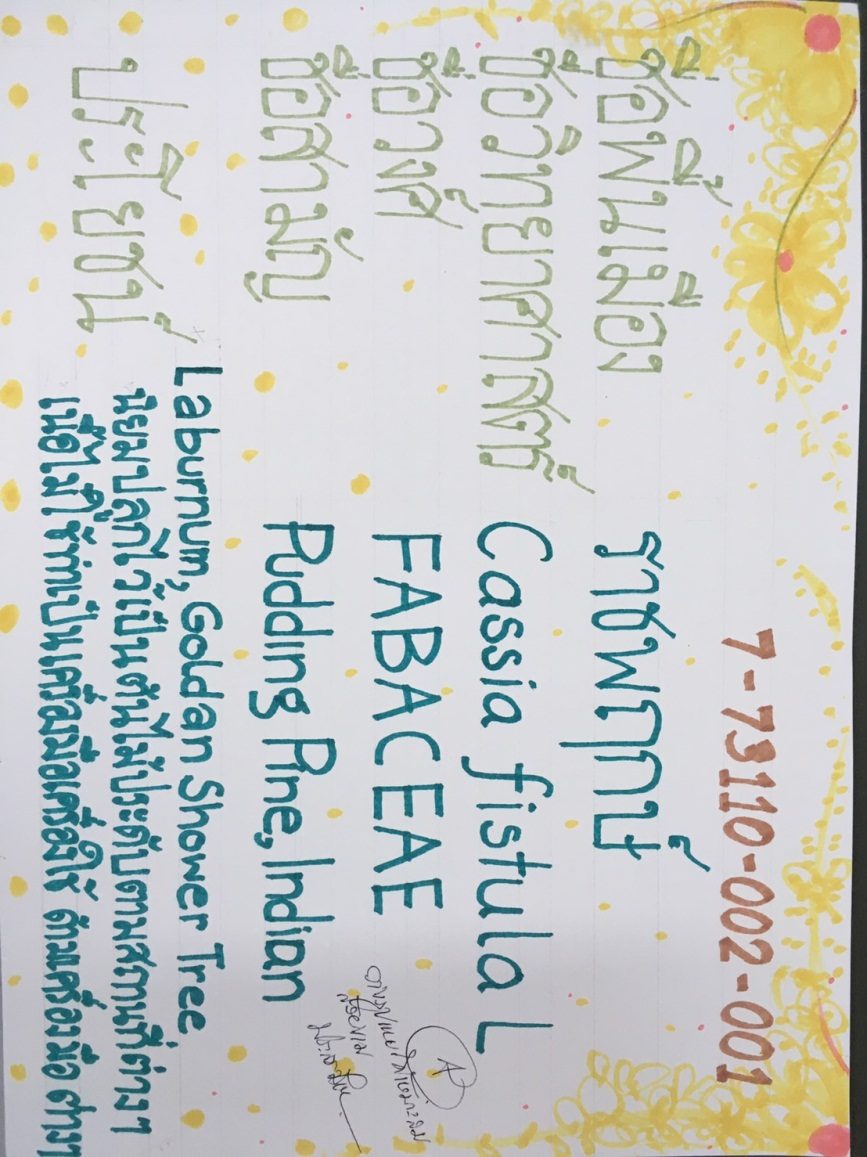 7-73110-002-001
ชื่อพื้นเมือง ราชพฤกษ์
ชื่อวิทยาศาสตร์ Cassia fistula L
ชื่อวงศ์ FABACEAE
ชื่อสามัญ Pudding Pine, Indian
Laburnum, Goldan Shower Tree
ประโยชน์ นิยมปลูกไว้เป็นต้นไม้ประดับตามสถานที่ต่างๆ
เนื้อไม้ใช้ทำเป็นเครื่องมือเครื่องใช้ ด้ามเครื่องมือ ต่างๆ
A